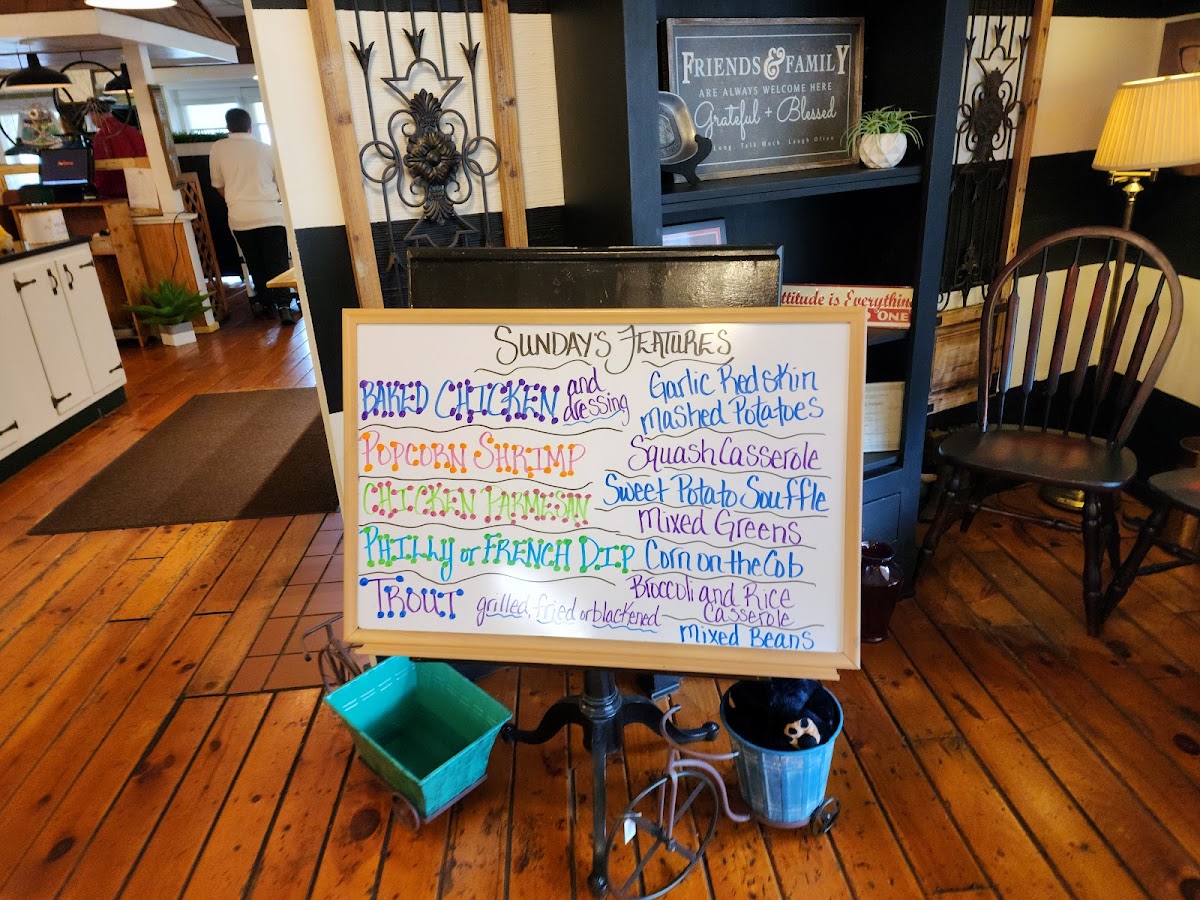 FRIENDS & FAMILY
ARE ALWAYS WELCOME HERE
Grateful + Blessed
Long. Talk Much. Laugh Often
ttitude is Everything
ONE
SUNDAY'S FEATURES
BAKED CHICKEN and dressing
POPCORN SHRIMP
CHICKEN PARMESAN
PHILLY or FRENCH DIP
TROUT grilled, fried or blackened
Garlic Redskin
Mashed Potatoes
Squash Casserole
Sweet Potato Souffle
Mixed Greens
Corn on the Cob
Broccoli and Rice
Casserole
Mixed Beans